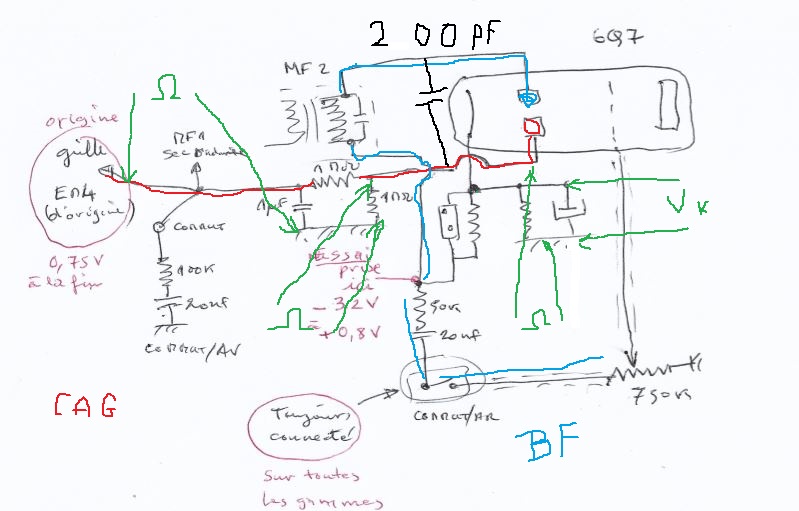 200 PF
6Q7
MF2
Ω
origine
grille
EM4
(d'origine)
0,75 V
à la fin
MF1
1 MΩ
1 µF
1 MΩ
COMMUT
100K
20nF
COMMUT/AV
essai
prise
ici
- 3,2V
à
+ 0,8V
Ω
Ω
VK
50K
20nF
750K
COMMUT/AR
CAG
BF
Toujours
connecté
Sur toutes
les gammes